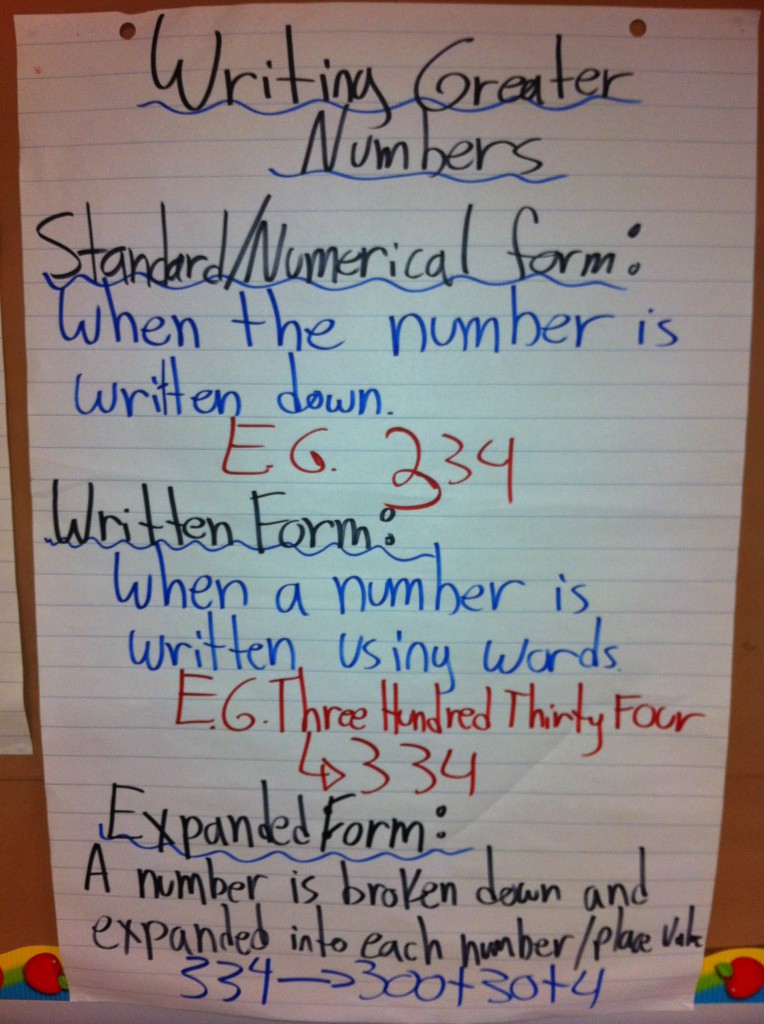 Writing Greater
Numbers
Standard/Numerical form:
When the number is
written down.
E.G. 334
Written Form:
When a number is
written using words.
E.G. Three Hundred Thirty Four
↳334
Expanded Form:
A number is broken down and
expanded into each number/place Value
334→300+30+4